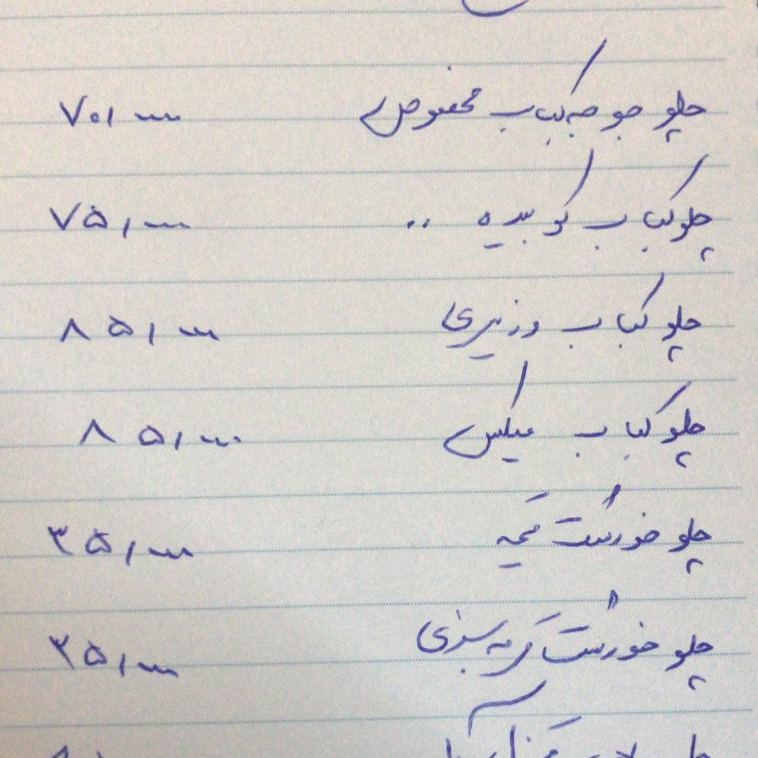 چلو جوجه کباب مخصوص ۷۰/۰۰۰
چلو کباب کوبیده ،، ۷۵/۰۰۰
چلو کباب وزیری ۸۵/۰۰۰
چلو کباب میکس ۸۵/۰۰۰
چلو خورشت قیمه ۳۵/۰۰۰
چلو خورشت قرمه سبزی ۳۵/۰۰۰